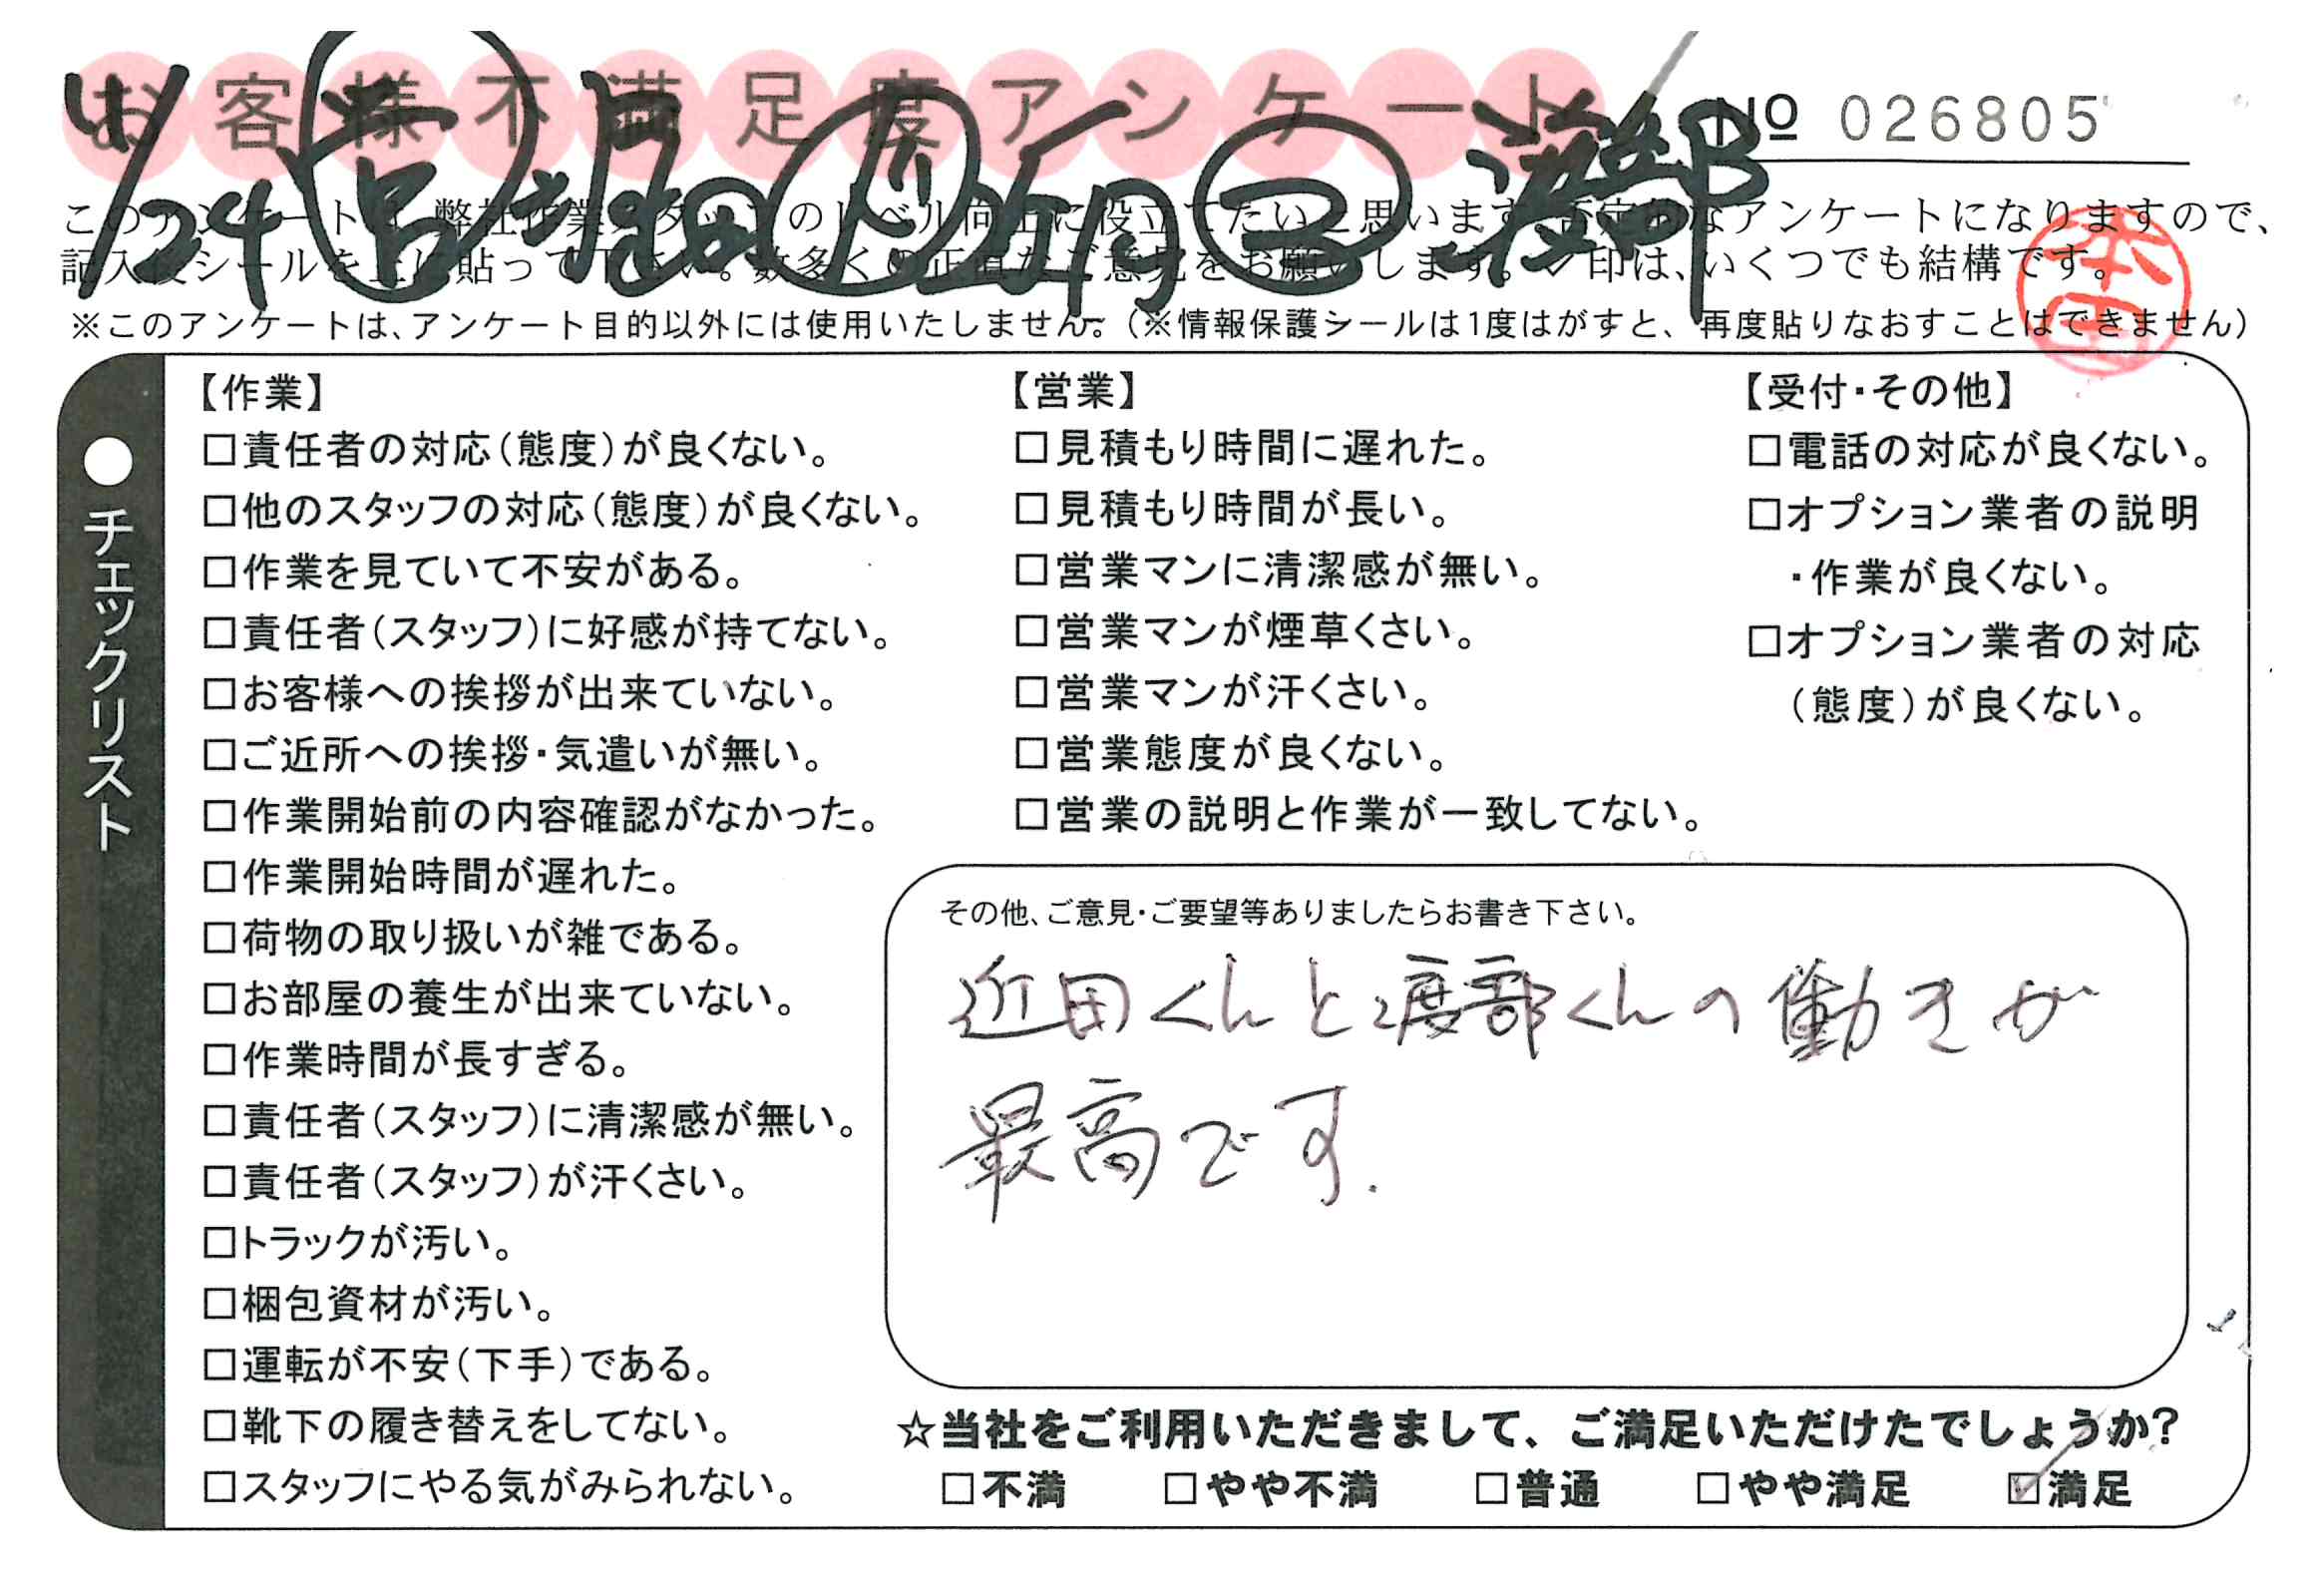 お客様不満足度アンケート
№ 026805
4/24 渡部
このアンケートは、弊社作業スタッフのレベル向上に役立てたいと思います。否定的なアンケートになりますので、
記入後シールを上に貼って下さい。数多くの正直なご意見をお願いします。✓印は、いくつでも結構です。
本田
※このアンケートは、アンケート目的以外には使用いたしません。（※情報保護シールは1度はがすと、再度貼りなおすことはできません）
●チェックリスト
【作業】
□責任者の対応（態度）が良くない。
□他のスタッフの対応（態度）が良くない。
□作業を見ていて不安がある。
□責任者（スタッフ）に好感が持てない。
□お客様への挨拶が出来ていない。
□ご近所への挨拶・気遣いが無い。
□作業開始前の内容確認がなかった。
□作業開始時間が遅れた。
□荷物の取り扱いが雑である。
□お部屋の養生が出来ていない。
□作業時間が長すぎる。
□責任者（スタッフ）に清潔感が無い。
□責任者（スタッフ）が汗くさい。
□トラックが汚い。
□梱包資材が汚い。
□運転が不安（下手）である。
□靴下の履き替えをしてない。
□スタッフにやる気がみられない。
【営業】
□見積もり時間に遅れた。
□見積もり時間が長い。
□営業マンに清潔感が無い。
□営業マンが煙草くさい。
□営業マンが汗くさい。
□営業態度が良くない。
□営業の説明と作業が一致してない。
【受付・その他】
□電話の対応が良くない。
□オプション業者の説明
・作業が良くない。
□オプション業者の対応
（態度）が良くない。
その他、ご意見・ご要望等ありましたらお書き下さい。
近田くんと渡部くんの働きが
最高です.
☆当社をご利用いただきまして、ご満足いただけたでしょうか?
□不満 □やや不満 □普通 □やや満足 ☑満足